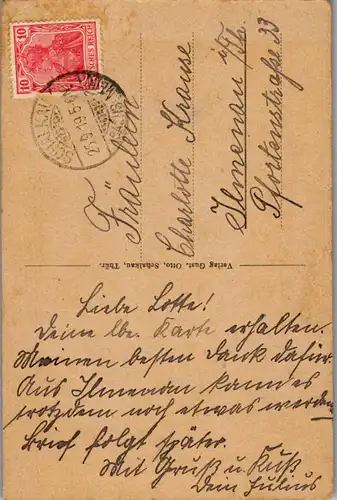 10
DEUTSCHES REICH
SCHALKAU
25.9.19.5-6
Fräulein
Charlotte Krause
Ilmenau i/Th.
Pfortenstraße 33
Verlag Gust. Otto, Schalkau, Thür.
Liebe Lotte!
Deine lbe. Karte erhalten.
Meinen besten Dank dafür.
Aus Ilmenau kann es
trotzdem noch etwas werden
Brief folgt später.
Mit Gruß u. Kuß
Dein Julius